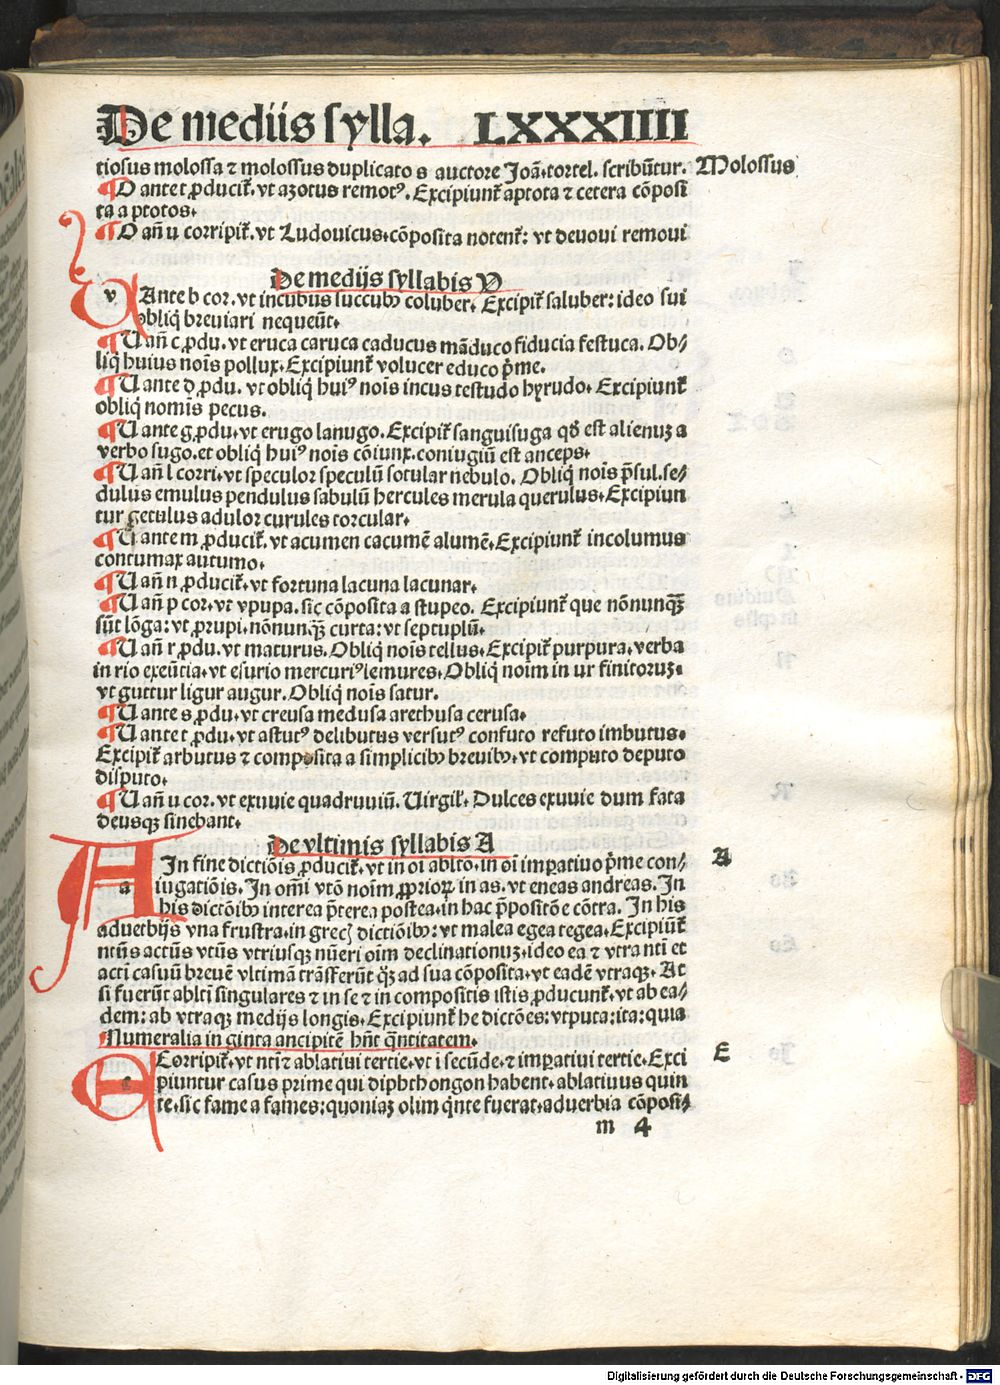 De mediis sylla. LXXXXIIII
tiosus molossa ⁊ molossus duplicato s auctore Joã.tortel. scribũtur. Molossus
¶O ante t ꝓducit̃. vt azotus remotꝰ. Excipiunt̃ aptota ⁊ cetera cõposi
ta a ptotos.
¶O añ u corripit̃. vt Ludouicus.cõposita notent̃: vt deuoui remoui
De medijs syllabis V
v Ante b cor. vt incubus succubꝰ coluber. Excipit̃ saluber: ideo sui
obliq̃ breuiari nequeũt.
¶U añ c ꝓdu. vt eruca caruca caducus mãduco fiducia festuca. Ob⸗
liq̃ huius nois̃ pollux. Excipiunt̃ volucer educo p̃me.
¶U ante d ꝓdu. vt obliq̃ huiꝰ nois̃ incus testudo hyrudo. Excipiunt̃
obliq̃ nomis pecus.
¶U ante g ꝓdu. vt erugo lanugo. Excipit̃ sanguisuga qd̃ est alienuꝫ a
verbo sugo. et obliq̃ huiꝰ nois̃ cõiunx. coniugiũ est anceps.
¶U añ l corri. vt speculor speculũ sotular nebulo. Obliq̃ nois̃ p̃sul. se⸗
dulus emulus pendulus sabulũ hercules merula querulus. Excipiun
tur getulus adulor curules torcular.
¶U ante m ꝓducit̃. vt acumen cacumẽ alumẽ. Excipiunt̃ incolumus
contumax autumo.
¶U añ n ꝓducit̃. vt fortuna lacuna lacunar.
¶U añ p cor. vt vpupa. sic cõposita a stupeo. Excipiunt̃ que nõnunqꝫ̃
sũt lõga: vt ꝓrupi. nõnunqꝫ̃ curta: vt septuplũ.
¶U añ r ꝓdu. vt maturus. Obliq̃ nois̃ tellus. Excipit̃ purpura. verba
in rio exeũtia. vt esurio mercuriꝰ lemures. Obliq̃ noim̃ in ur finitoruꝫ.
vt guttur ligur augur. Obliq̃ nois̃ satur.
¶U ante s ꝓdu. vt creusa medusa arethusa cerusa.
¶U ante t ꝓdu. vt astutꝰ delibutus versutꝰ confuto refuto imbutus.
Excipit̃ arbutus ⁊ composita a simplicibꝰ breuibꝰ. vt computo deputo
disputo.
¶U añ u cor. vt exuuie quadruuiũ. Uirgil̃. Dulces exuuie dum fata
deusqꝫ sinebant.
De vltimis syllabis A
a In fine dictiõis ꝓducit̃. vt in oi ablt̃o. in oĩ imꝑatiuo p̃me con⸗ A
iugatiõis. In om̃i vt̃o noim̃ ꝓprioꝝ in as. vt eneas andreas. In
his dictõibꝰ interea p̃terea postea. in hac p̃positõe cõtra. In his
aduerbijs vna frustra. in grecꝭ dictiõibꝰ: vt malea egea tegea. Excipiũt̃
nt̃us act̃us vt̃us vtriusqꝫ nũeri oim̃ declinationuꝫ. ideo ea ⁊ vtra nt̃i et
act̃i casuũ breuẽ vltimã trãsferũt qꝫ̃ ad sua cõposita. vt eadẽ vtraqꝫ. At
si fuerũt ablt̃i singulares ⁊ in se ⁊ in compositis istis ꝓducunt̃. vt ab ea⸗
dem: ab vtraqꝫ medijs longis. Excipiunt̃ he dictões: vtputa: ita: quia
Numeralia in ginta ancipitẽ hñt q̃ntitatem.
e Corripit̃. vt nt̃i ⁊ ablatiui tertie. vt i secũde. ⁊ imꝑatiui tertie. Exci E
piuntur casus prime qui diphthongon habent. ablatiuus quin
te. sic fame a fames: quoniaꝫ olim q̃nte fuerat. aduerbia cõposi⸗
m 4
Digitalisierung gefördert durch die Deutsche Forschungsgemeinschaft - DFG